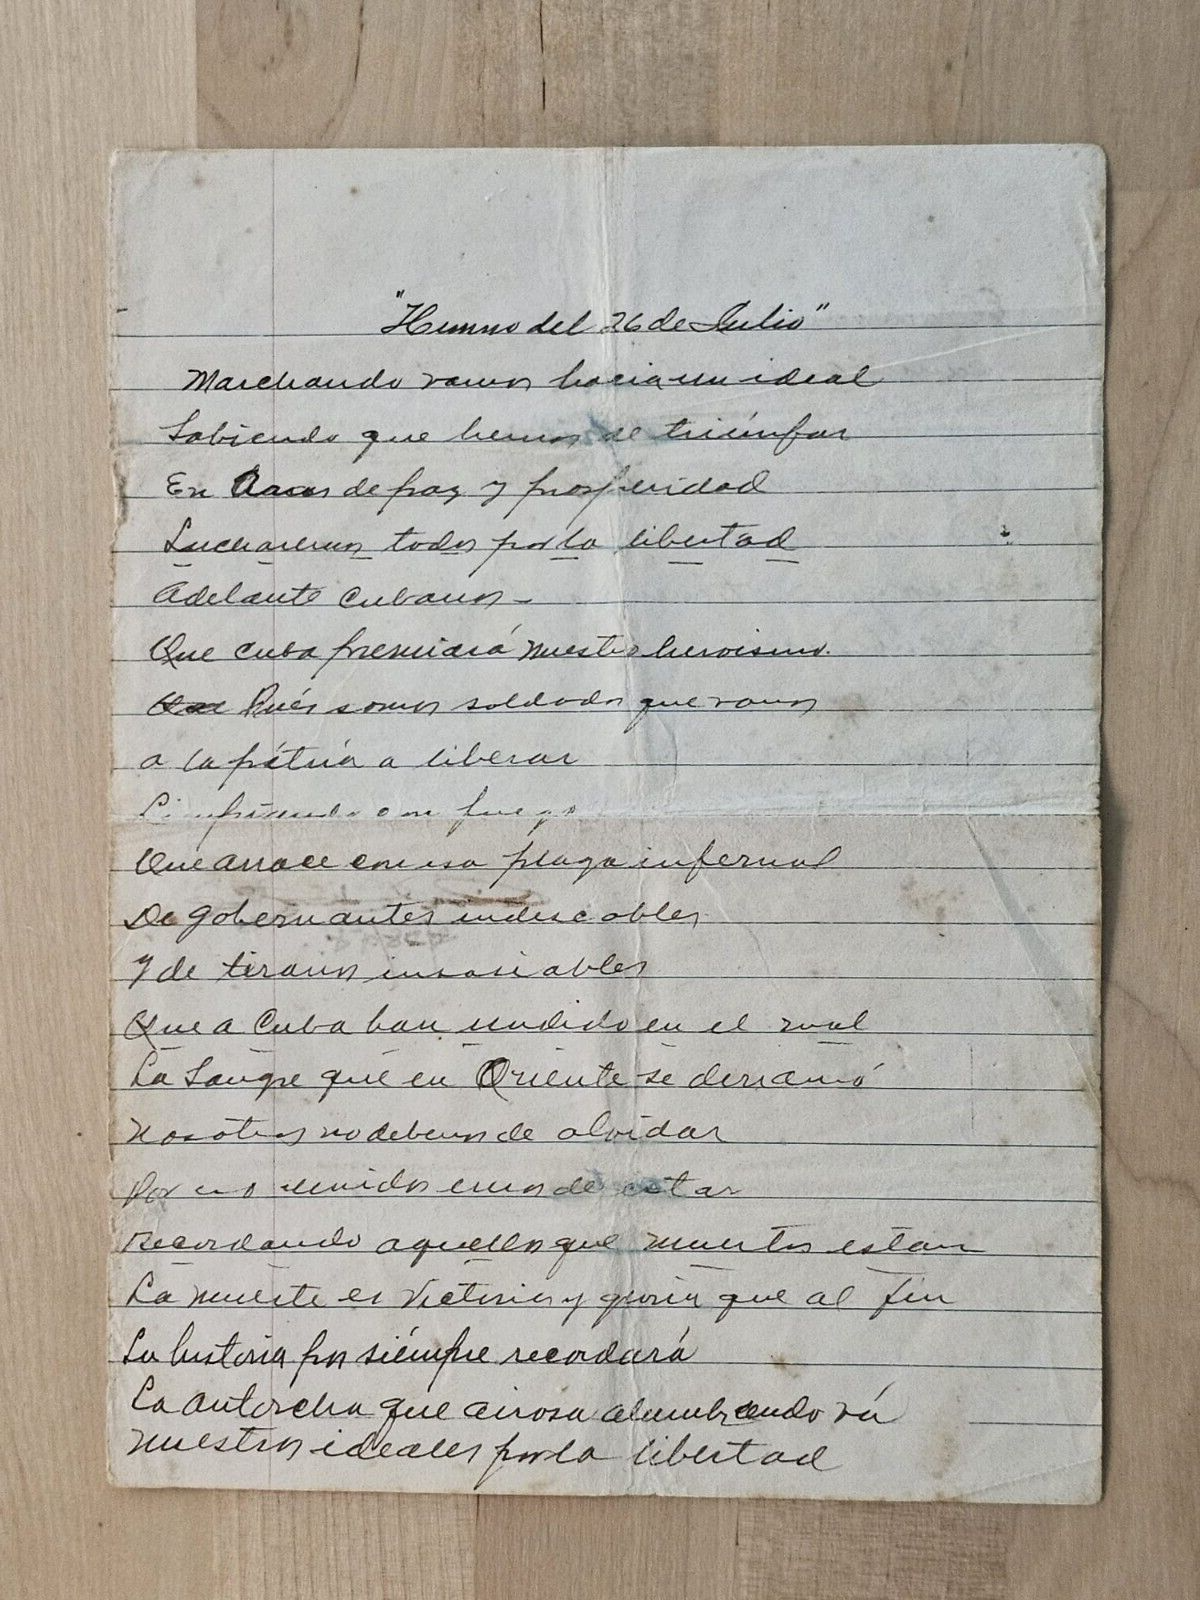 "Himno del 26 de Julio"
Marchando vamos hacia un ideal
Sabiendo que hemos de triúnfar
En Aras de paz y prosperidad
Lucharemos todos por la libertad
Adelante Cubanos -
Que Cuba premiará nuestro heroismo.
Pués somos soldados que vamos
a la pátria a liberar
Limpiando con fuego
Que arrace con esa plaga infernal
De gobernantes indeseables
Y de tiranos insasiables
Que a Cuba han undido en el mal
La Sangre que en Oriente se derramó
Nosótros no debemos de olvidar
Por eso unidos emos de estar
Recordando aquellos que muertos estan
La muerte es Victoria y gloria que al fin
Su historia por siémpre recordará
La antorcha que airosa alumbrando vá
nuestros ideales por la libertad